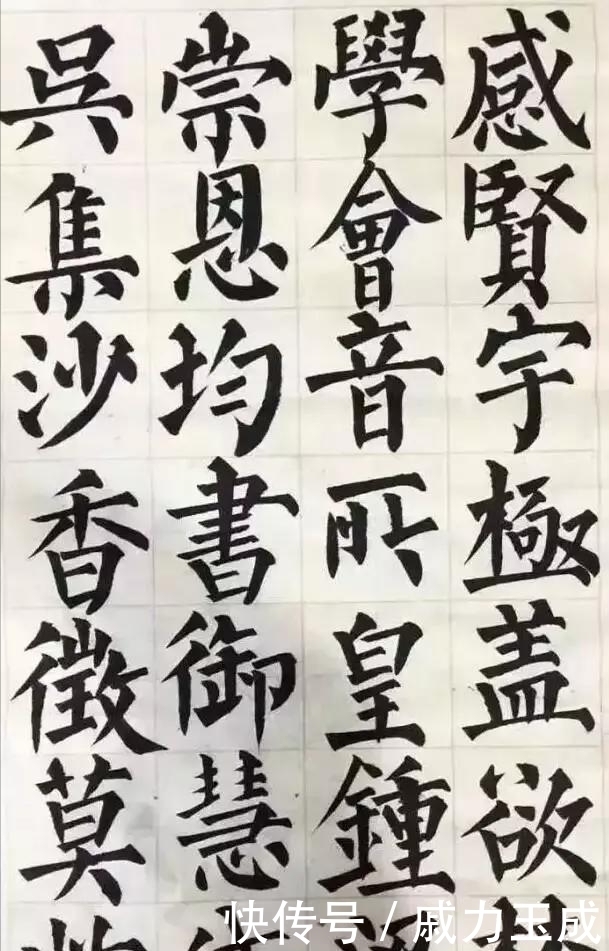 感賢宇極蓋欲
學會音所皇鍾
崇恩均書御慧
吳集沙香徵莫
快传号/戚力玉成